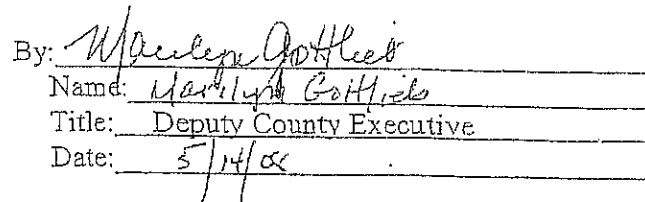 By: Marilyn Gottlieb
Name: Marilyn Gottlieb
Title: Deputy County Executive
Date: 5/14/08